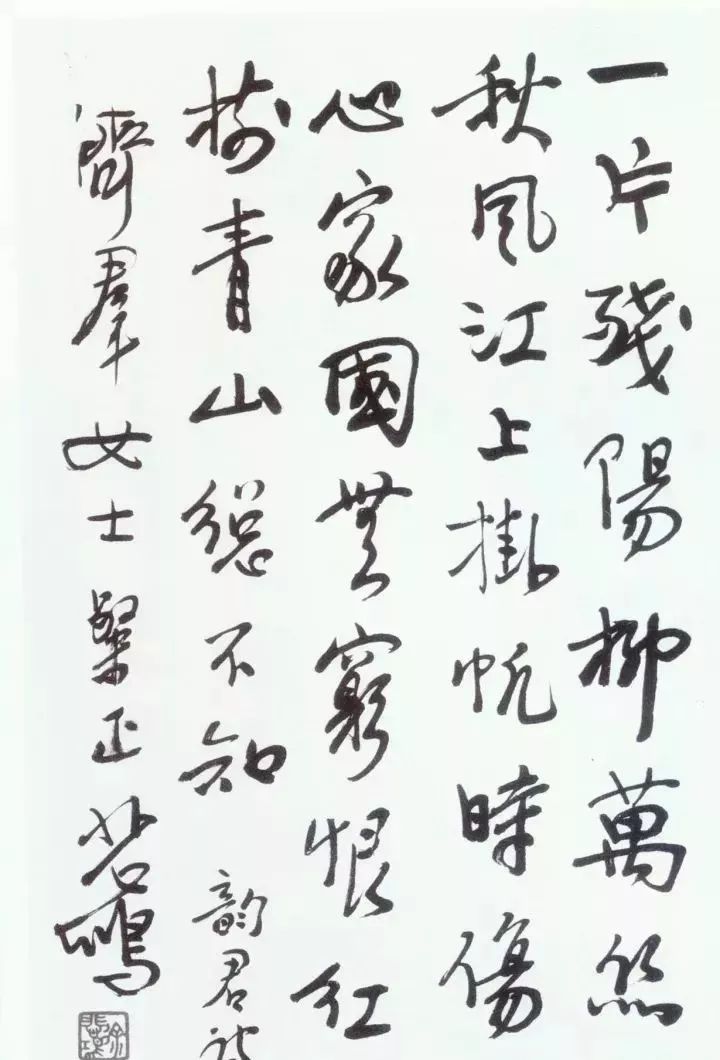 一片殘陽柳萬絲
秋風江上掛帆時傷
心家國無窮恨紅
樹青山總不知 韻君詩
濟羣女士粲正 悲鴻